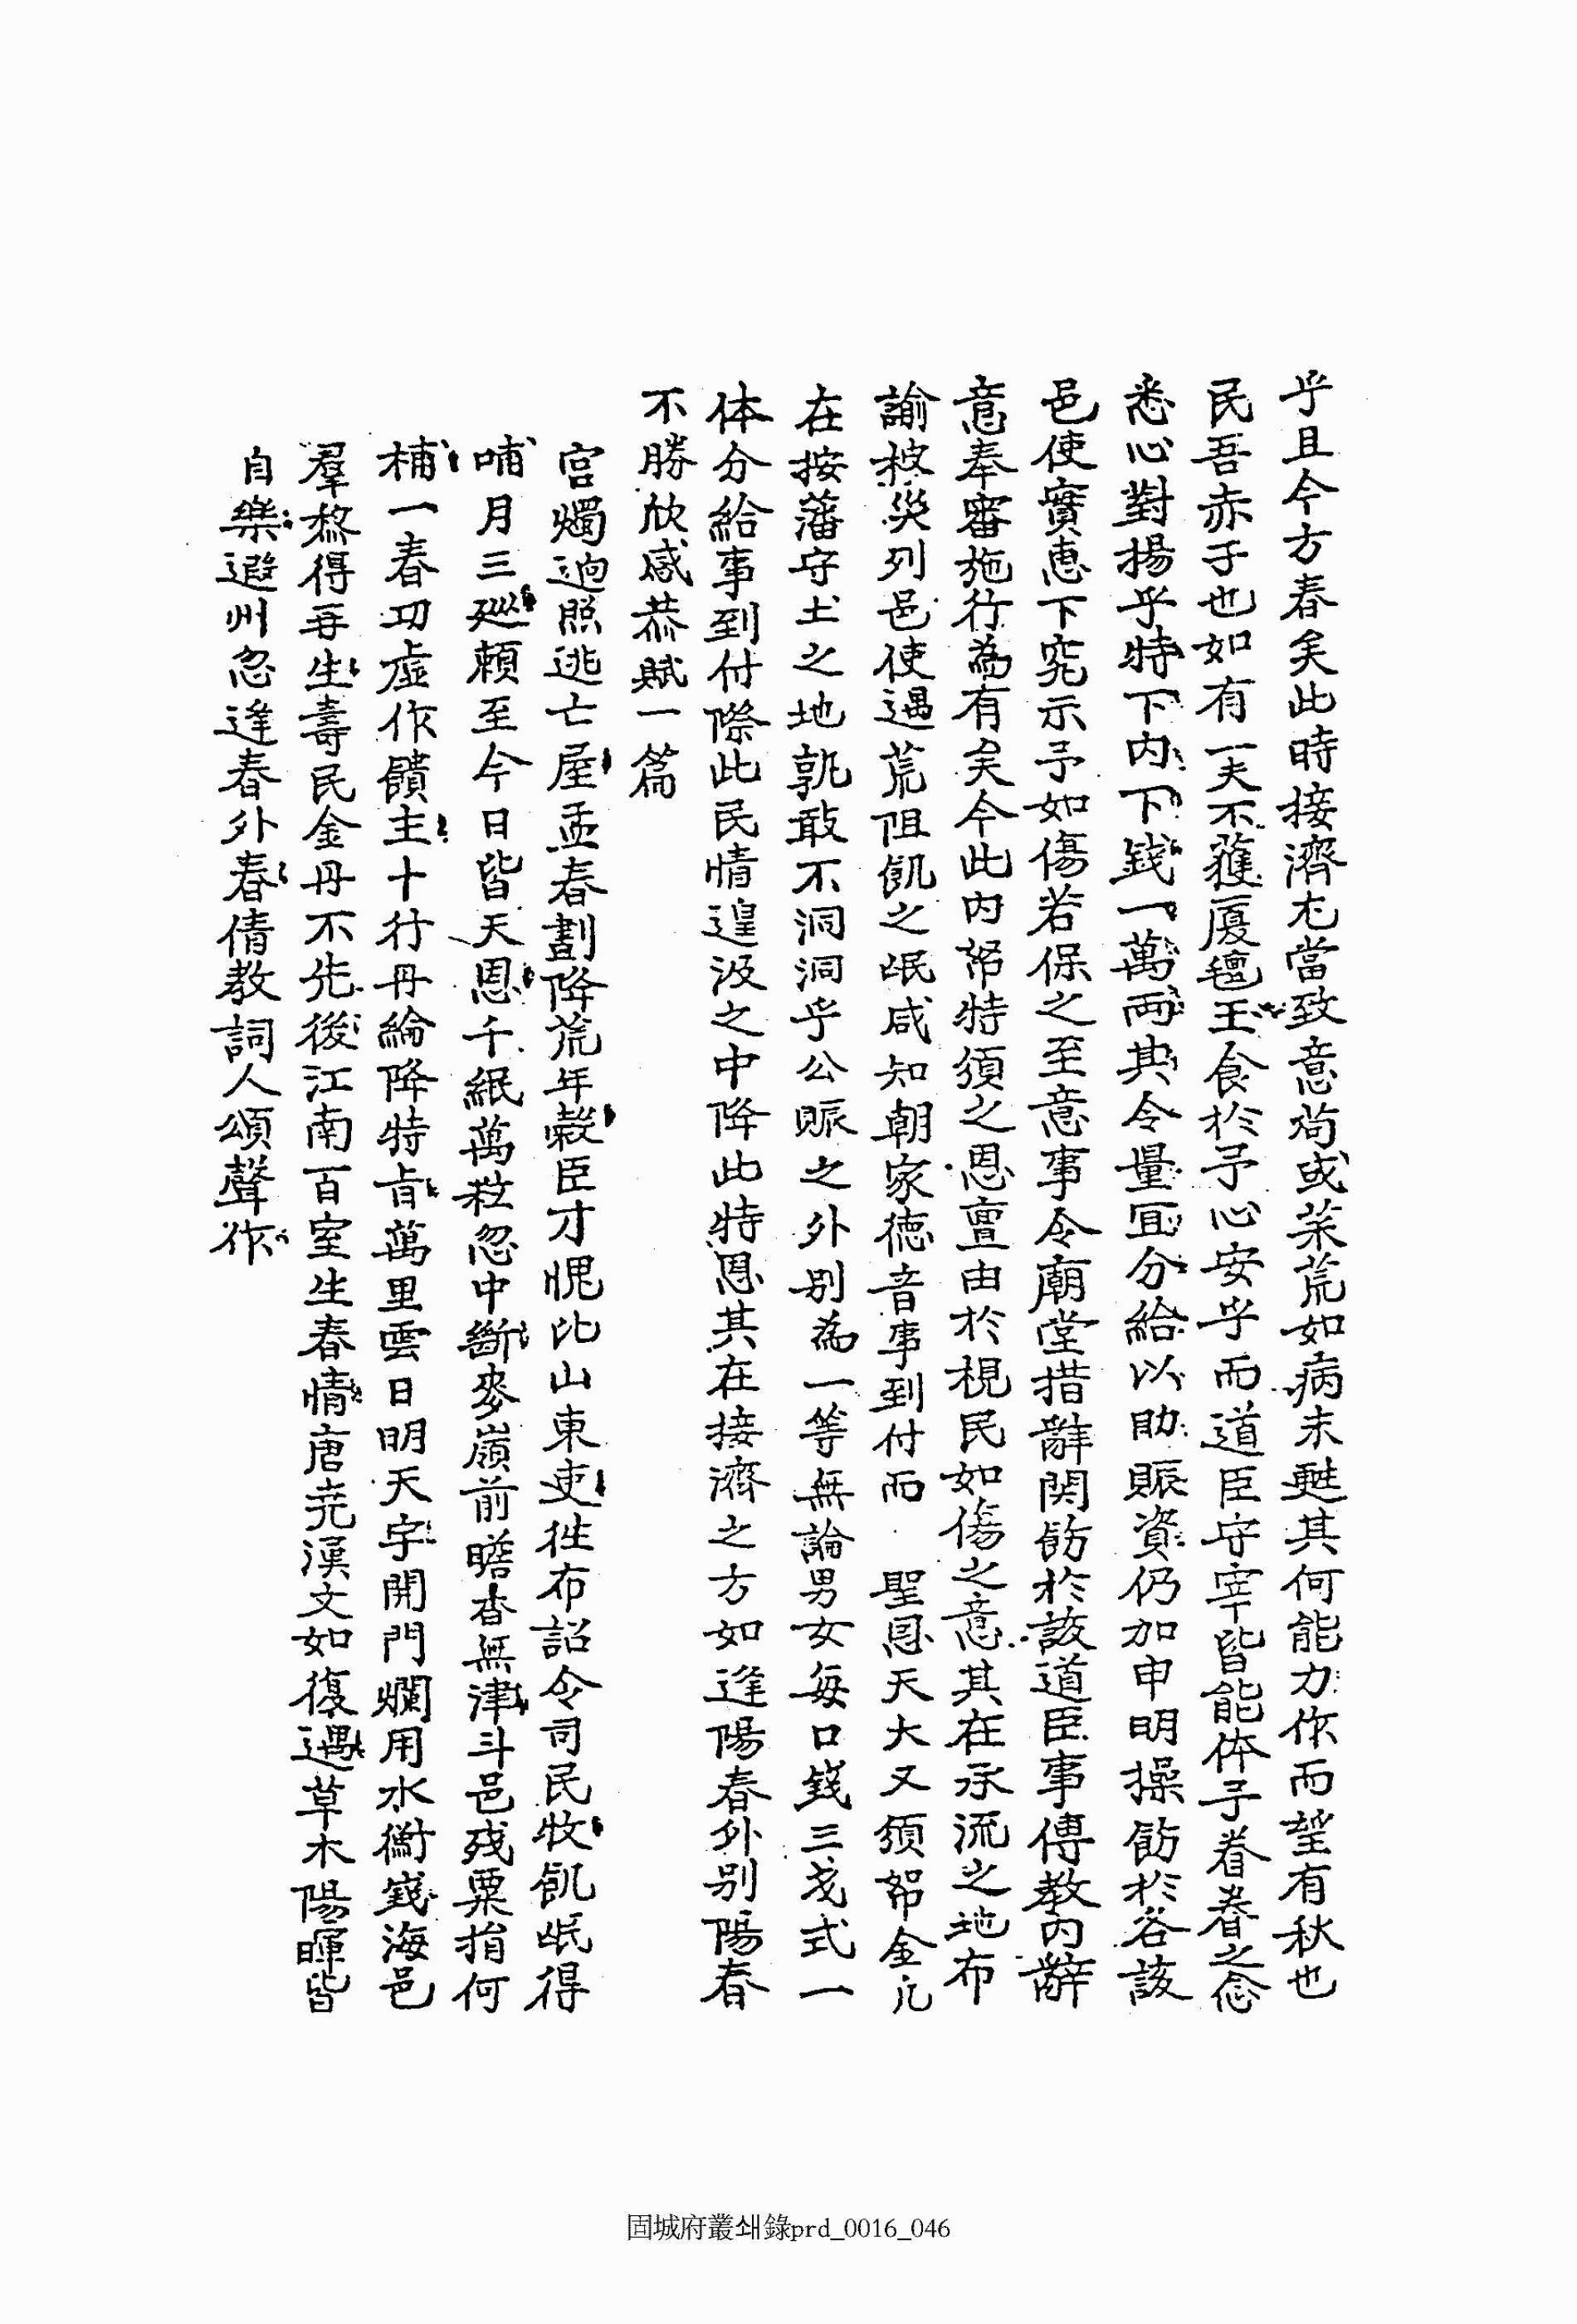 乎且今方春矣此時接濟尤當致意苟或茱荒如病未甦其何能力作而望有秋也
民吾赤子也如有一夫不獲廈氊玉食於予心安乎而道臣守宰皆能体予眷眷之念
悉心對揚乎特下內下錢一萬兩其令量宜分給以助賑資仍加申明操飭於各該
邑使實惠下究示予如傷若保之至意事令廟堂措辭関飭於該道臣事傳教內辭
意奉審施行爲有矣今此內帑特須之恩亶由於視民如傷之意其在承流之地布
諭被災列邑使遇荒阻飢之氓咸知朝家德音事到付而 聖恩天大又須帑金凡
在按藩守土之地孰敢不洞洞乎公賑之外別為一等無論男女每口錢三戔式一
体分給事到付際此民情遑汲之中降此特恩其在接濟之方如逢陽春外別陽春
不勝欣感恭賦一篇
宮燭迥照逃亡屋孟春劃降荒年穀臣才愧比山東吏徃布詔令司民牧飢氓得
哺月三廵賴至今日皆天恩千緡萬粒忽中斷麥嶺前瞻杳無津斗邑殘粟捐何
補一春功虛作饋主十行丹綸降特旨萬里雲日明天宇開門爛用水衡錢海邑
羣黎得再生壽民金丹不先後江南百室生春情唐堯漢文如復遇草木陽暉皆
自樂遐州忽逢春外春倩教詞人頌聲作
固城府叢쇄錄prd_0016_046